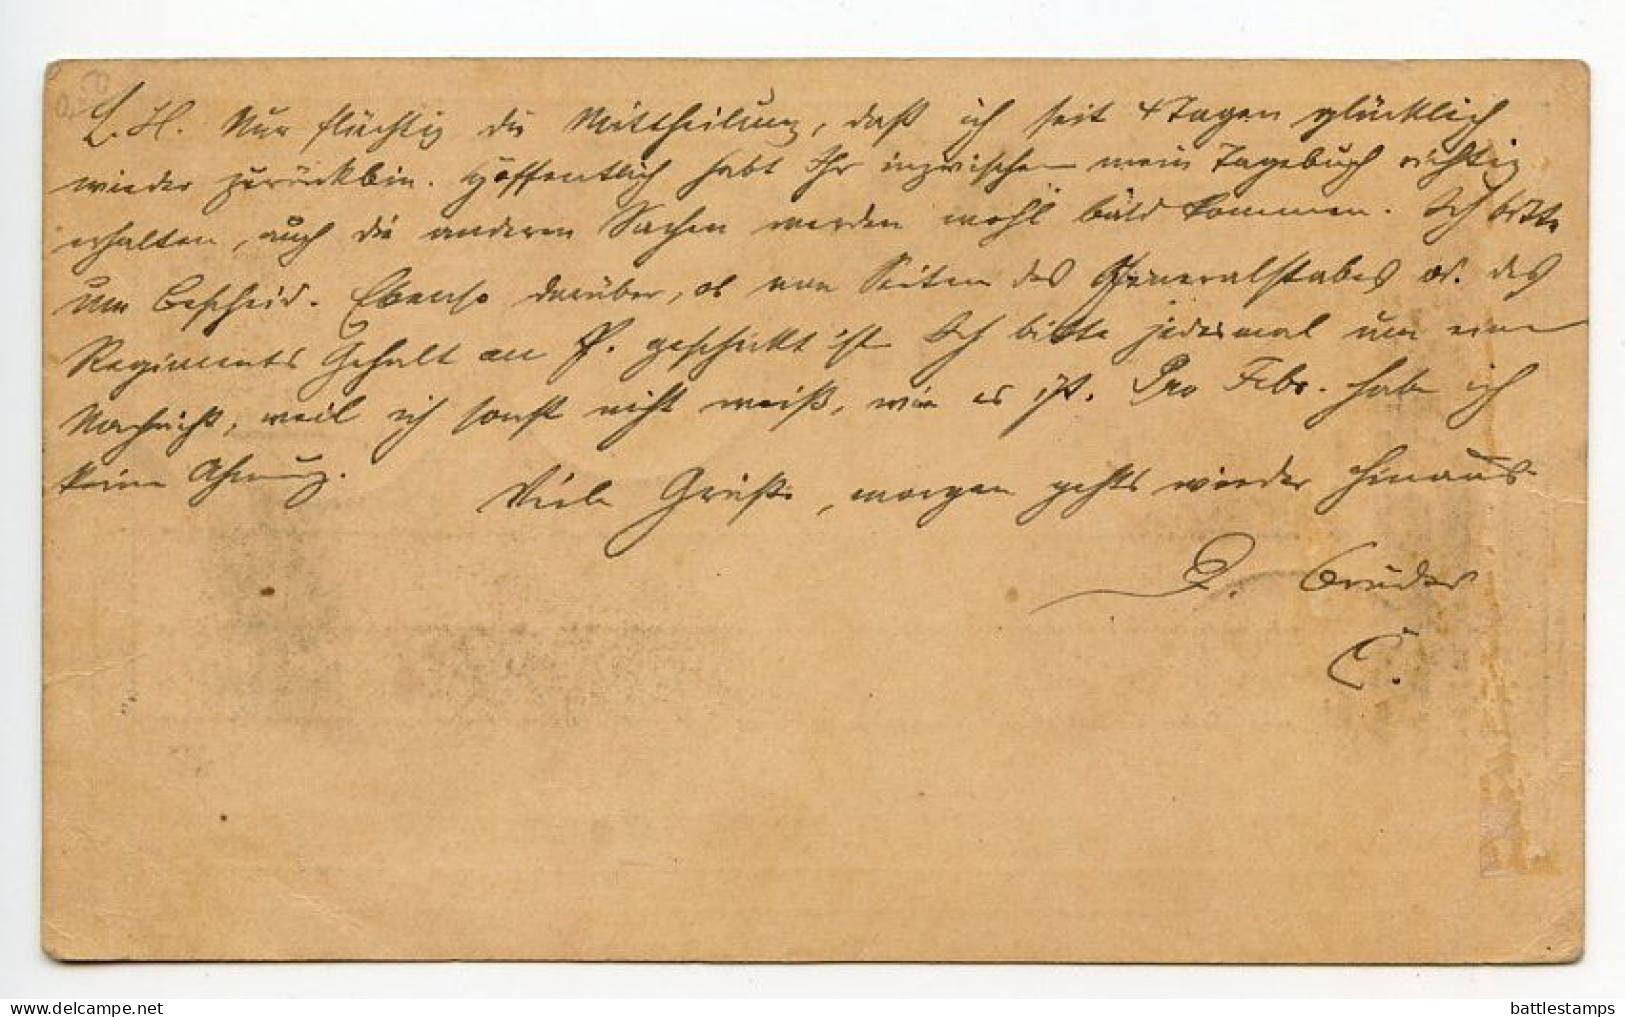 L. H. Nur flüchtig die Mittheilung, daß ich seit 4 Tagen glücklich
wieder zurückbin. Hoffentlich habt Ihr inzwischen mein Tagebuch richtig
erhalten, auch die anderen Sachen werden wohl bald kommen. Ich bitte
um Bescheid. Ebenso darüber, ob von Seiten des Generalstabes od. des
Regiments Gehalt an P. geschickt ist. Ich bitte jedesmal um eine
Nachricht, weil ich sonst nicht weiß, wie es ist. Pro Febr. habe ich
keine Ahnung.
Viele Grüße, morgen gehts wieder hinaus
D. Bruder
C.
battlestamps
www.delcampe.net